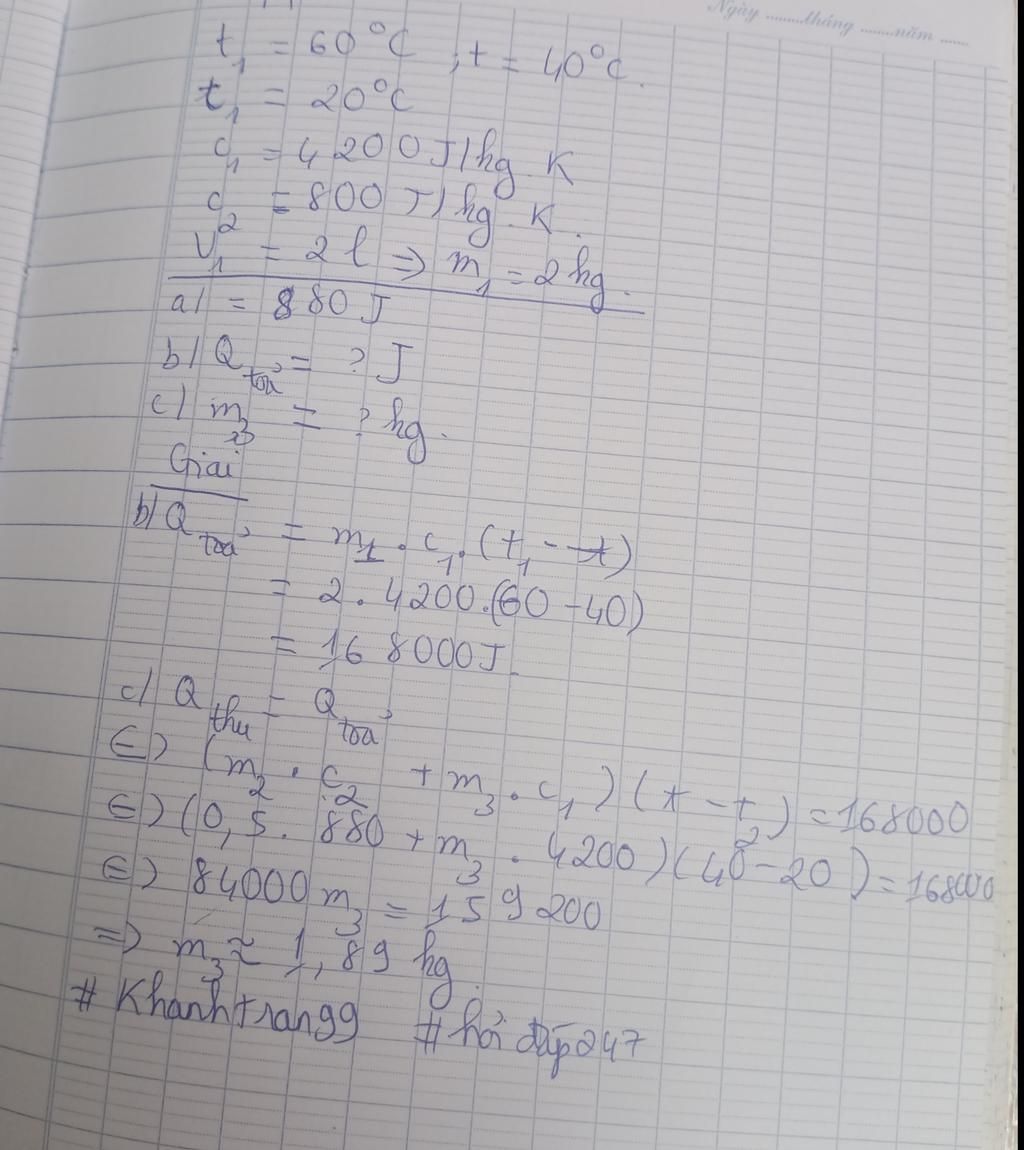 Ngày ........tháng ........năm ......
t₁ = 60°C ; t = 40°C.
t₁ = 20°C
c₁ = 4200J/kg.K
c₂ = 800J/kg.K.
V₁ = 2l => m₁ = 2kg.
a/ = 880J
b/ Q tỏa = ? J
c) m₃ = ? kg.
Giải
b/ Q tỏa = m₁.c₁.(t₁-t)
= 2.4200.(60-40)
= 168000J
c/ Q thu = Q tỏa
<=> (m₂.c₂ + m₃.c₁)(t-t₂)=168000
<=> (0,5.880+m₃.4200)(40-20)=168000
<=> 84000m₃ = 159200
=> m₃ ≈ 1,89 kg.
#Khanhtrang9 #hỏi đáp247